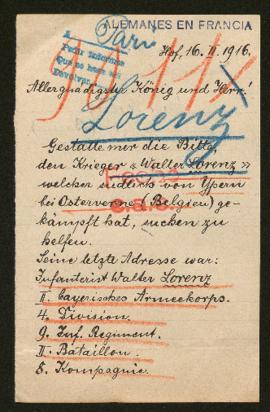 ALEMANES EN FRANCIA
A
Pedir informes
Que se haga
Devolver
París
Hof, 16. II. 1916.
Allergnädigster König und Herr!
Lorenz
Gestatte mir die Bitte,
den Krieger « Walter Lorenz »
welcher südlich von Ypern
bei Osterverne (Belgien) ge-
kämpft hat, suchen zu
helfen.
Seine letzte Adresse war:
Infanterist Walter Lorenz
II. bayerisches Armeekorps.
4. Division.
9. Inf. Regiment.
II. Bataillon.
8. Kompagnie.